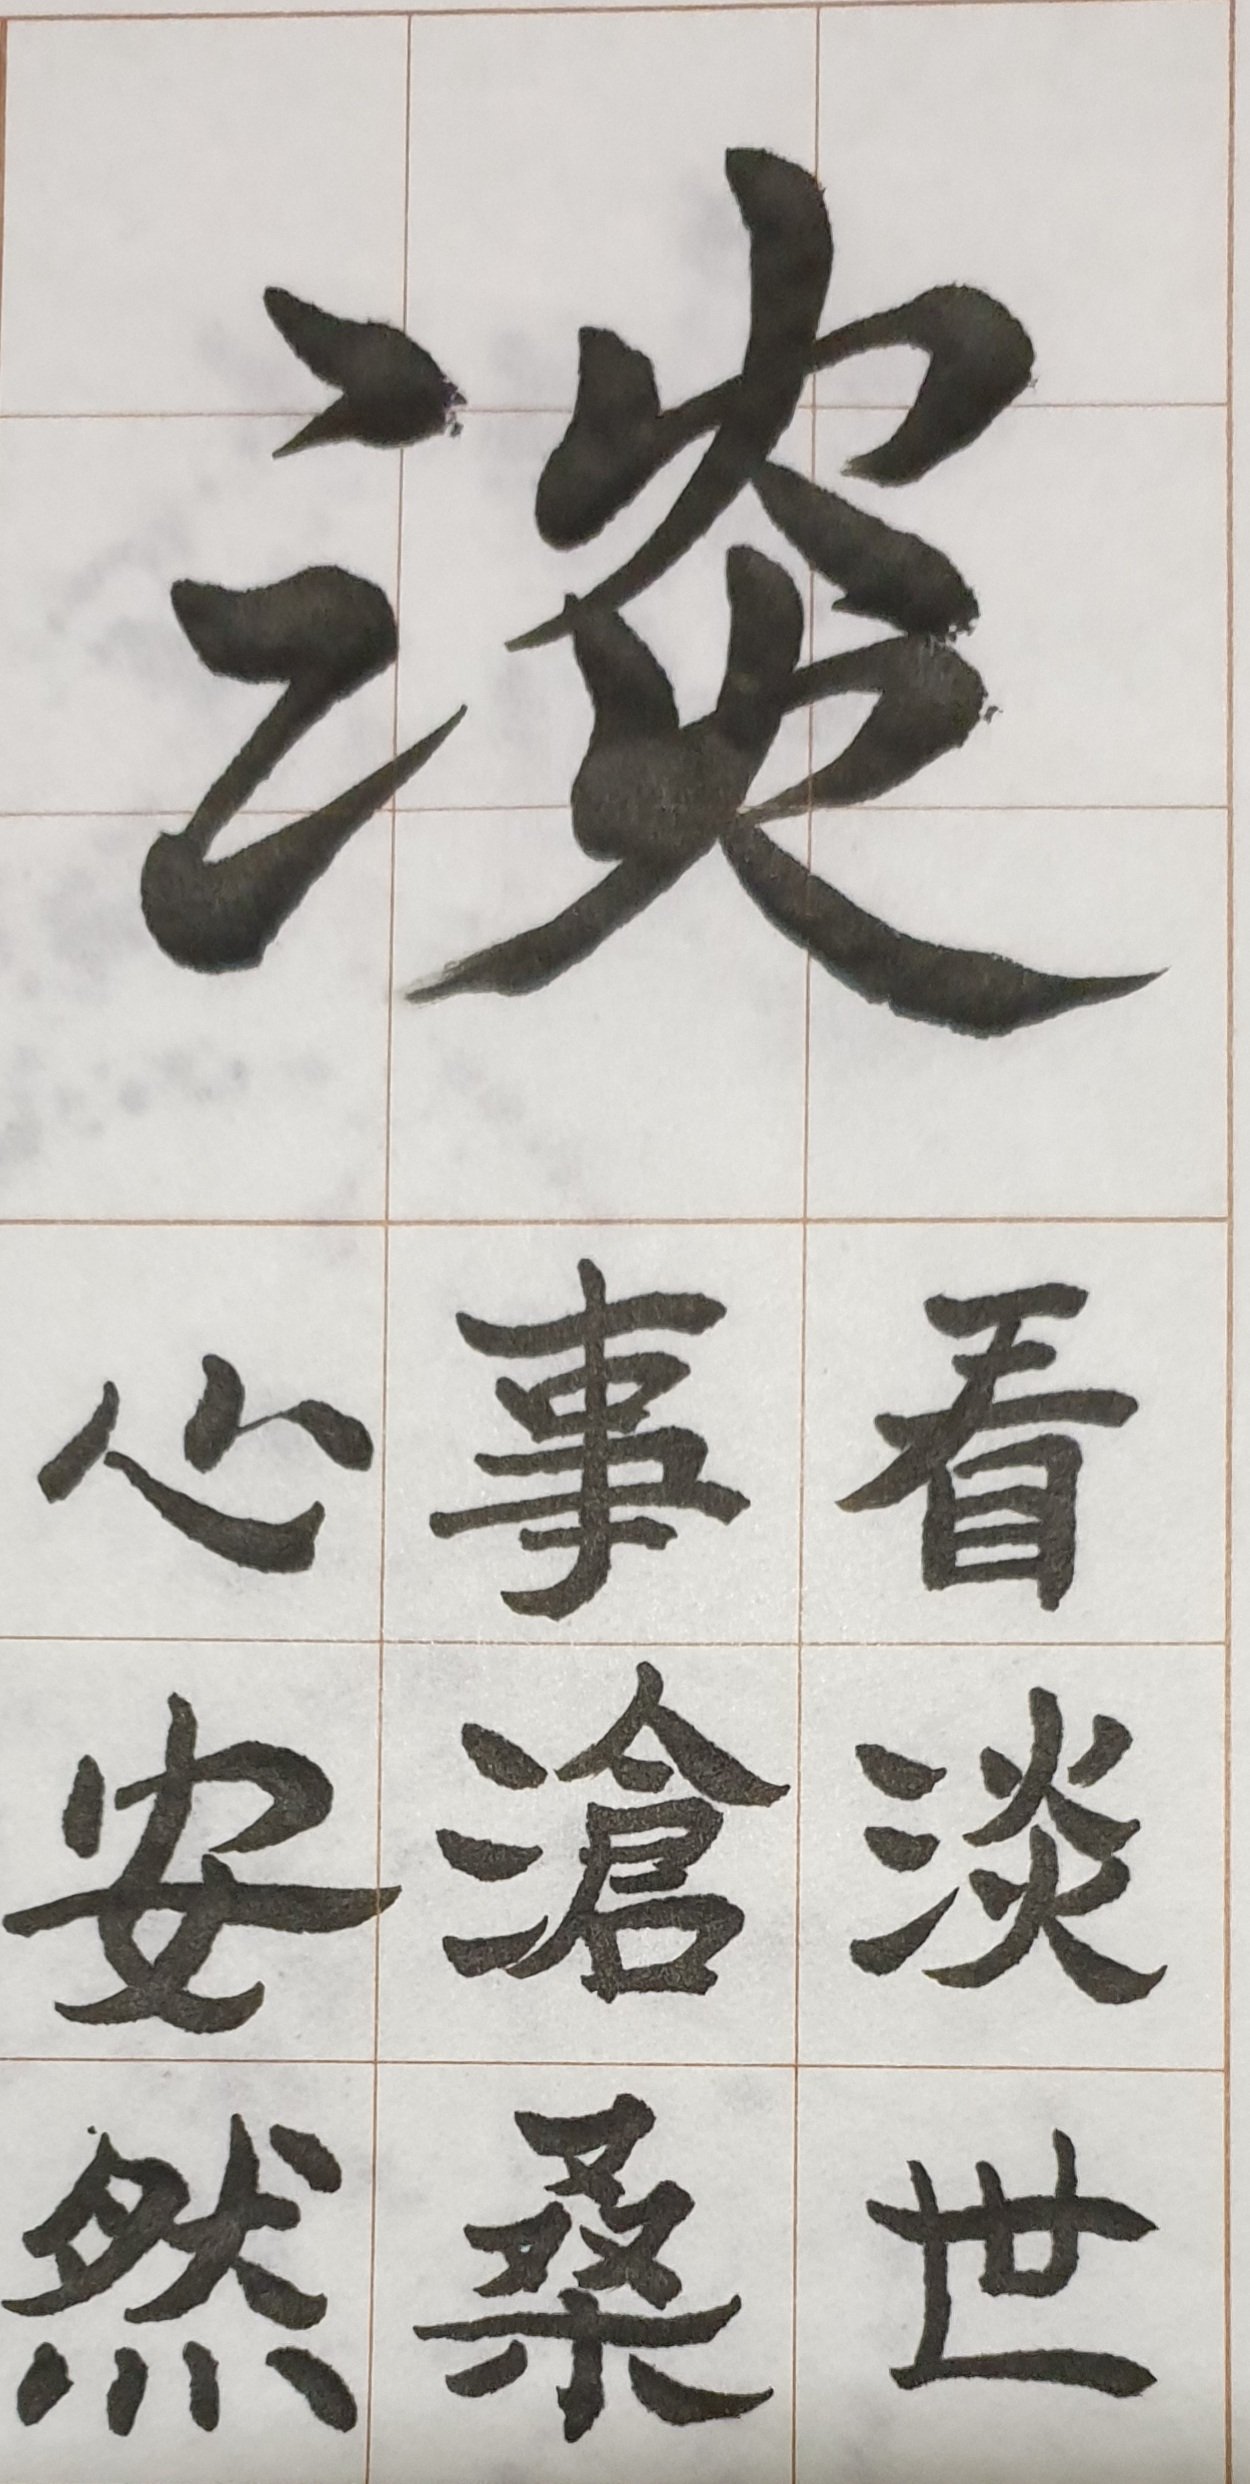 淡
看淡世
事滄桑
心安然